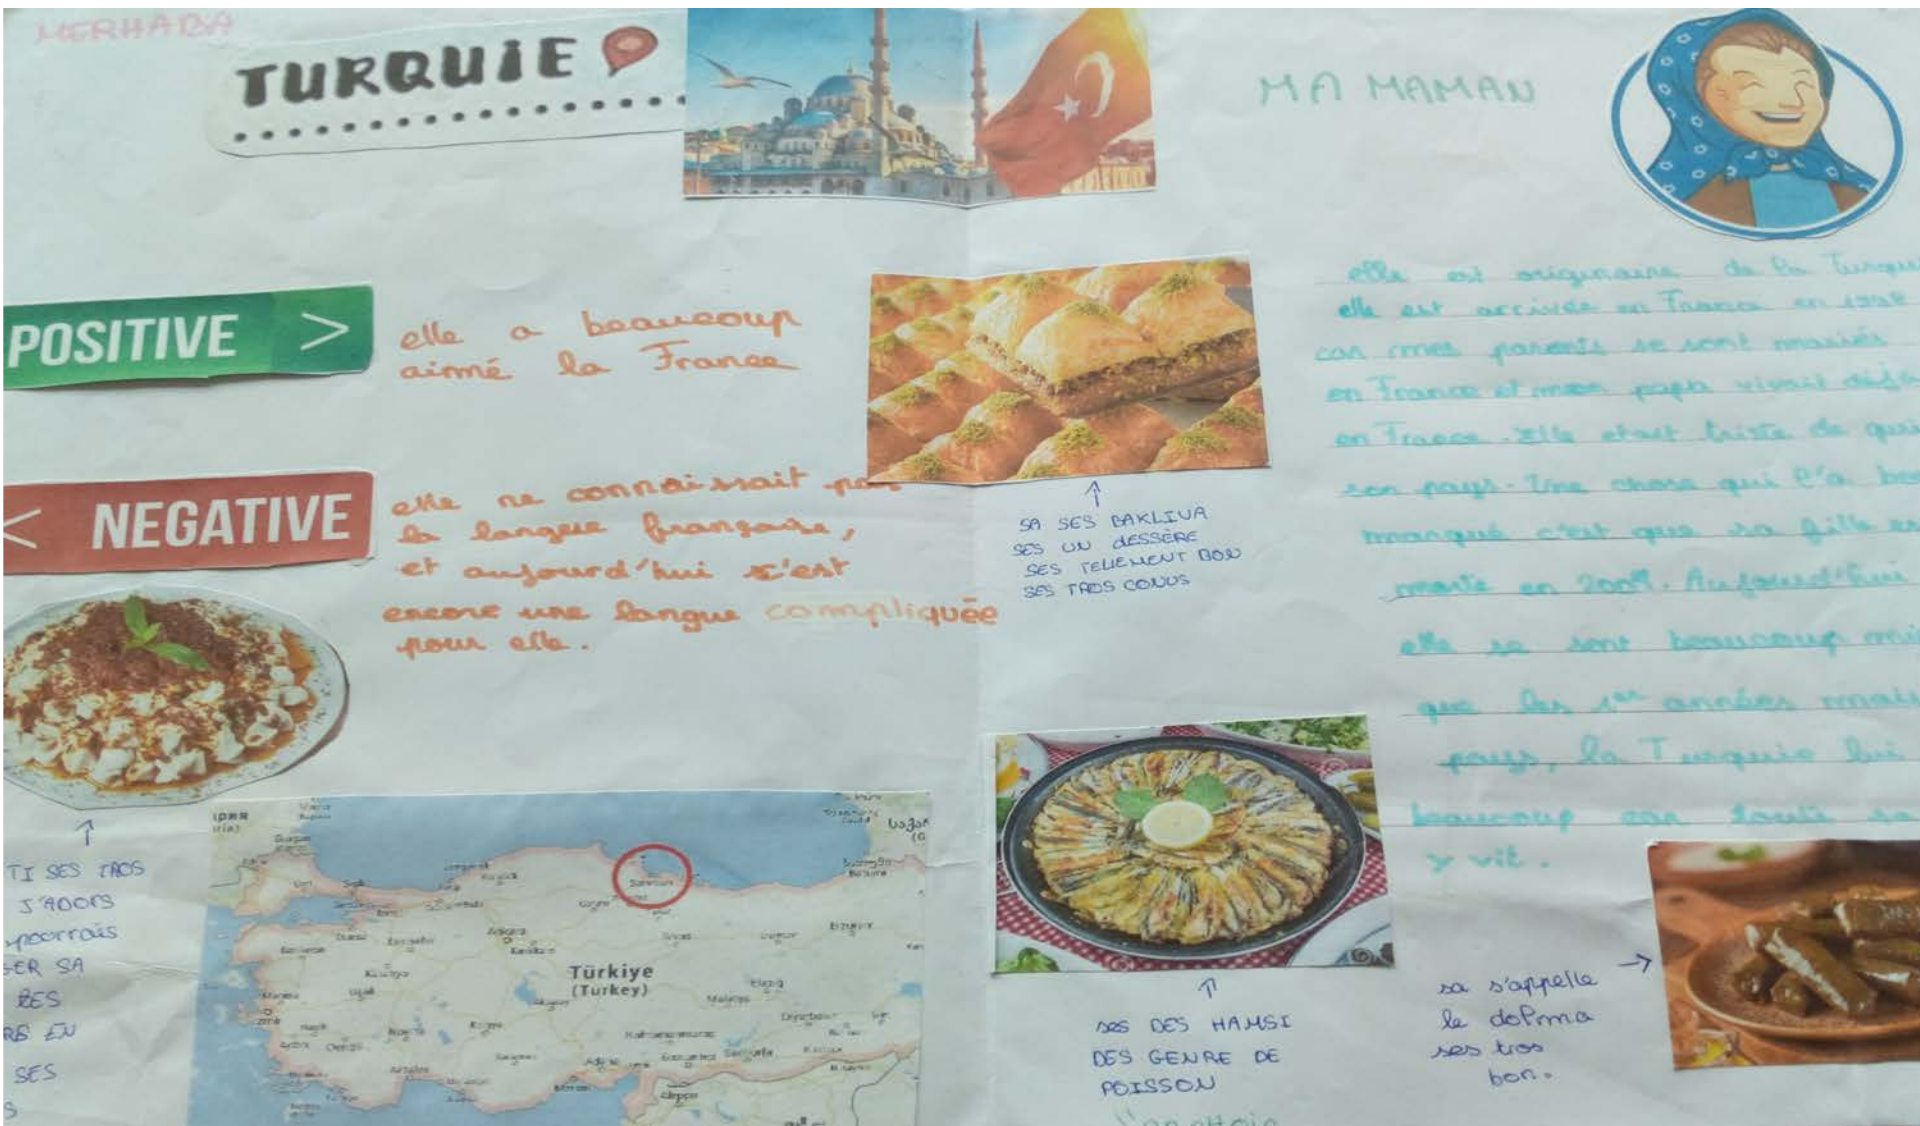 MERHABA
TURQUIE
MA MAMAN
POSITIVE >
elle a beaucoup
aimé la France
< NEGATIVE
elle ne connaissait pas
la langue française,
et aujourd'hui c'est
encore une langue compliquée
pour elle.
SA SES BAKLIVA
SES UN dESSÈRE
SES TELEMENT BON
SES TROS CONUS
elle est originaire de la Turqui
elle est arrivée en France en
car mes parents se sont mariés
en France et mon papa vivait déjà
en France. Elle etait triste de qui
son pays. Une chose qui l'a be
manqué c'est que sa fille es
morte en Aujourd'hui
elle sa sent beaucoup mi
que les 1er années mais
pays, la Turquie lui
beaucoup car toute sa
y vit.
TI SES TROS
J'ADORS
pourrais
GER SA
RES
RS EN
SES
S
Samsun
Ankara
Türkiye
(Turkey)
Konya
Malatya
Elazığ
Erzurum
Sivas
Aleppo
SES DES HAMSI
DES GENRE DE
POISSON
sa s'appelle
le dolma
ses tros
bon.